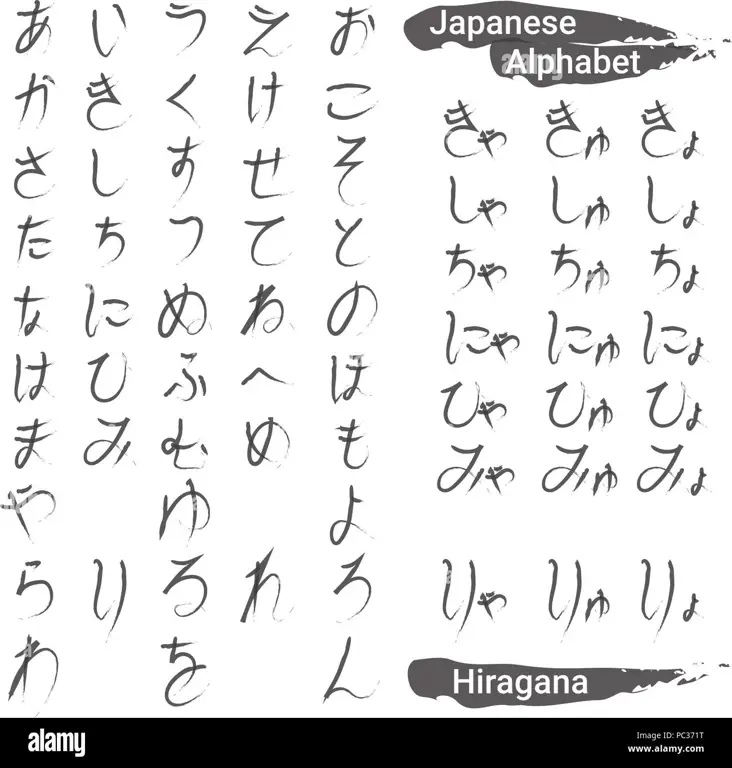 あ い う え お
か き く け こ
さ し す せ そ
た ち つ て と
な に ぬ ね の
は ひ ふ へ ほ
ま み む め も
や ゆ よ
ら り る れ ろ
わ を ん
Japanese
Alphabet
きゃ きゅ きょ
しゃ しゅ しょ
ちゃ ちゅ ちょ
にゃ にゅ にょ
ひゃ ひゅ ひょ
みゃ みゅ みょ
りゃ りゅ りょ
Hiragana
alamy
Image ID: PC371T
www.alamy.com